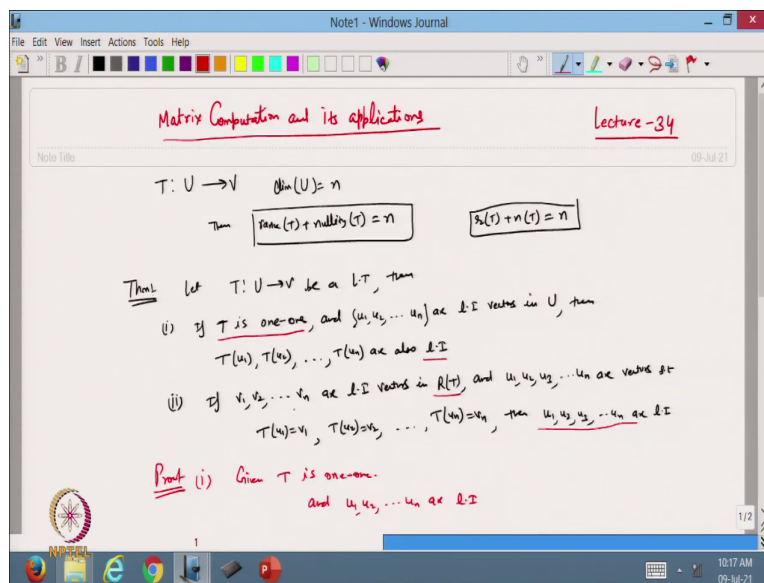 Note1 - Windows Journal
File Edit View Insert Actions Tools Help
Matrix Computation and its applications
Lecture-34
Note Title
09-Jul-21
T: U → V dim(U) = n
Then rank(T) + nullity(T) = n r(T) + n(T) = n
Thm1 Let T: U → V be a L.T, then
(i) If T is one-one, and {u1, u2, ... un} are l.I vectors in U, then
T(u1), T(u2), ..., T(un) are also l.I
(ii) If v1, v2, ... vn are l.I vectors in R(T), and u1, u2, u3, ... un are vectors st
T(u1)=v1, T(u2)=v2, ..., T(un)=vn, then u1, u2, u3, ... un are l.I
Proof (i) Given T is one-one.
and u1, u2, ... un are l.I
1/2
NPTEL
1
10:17 AM
09-Jul-21